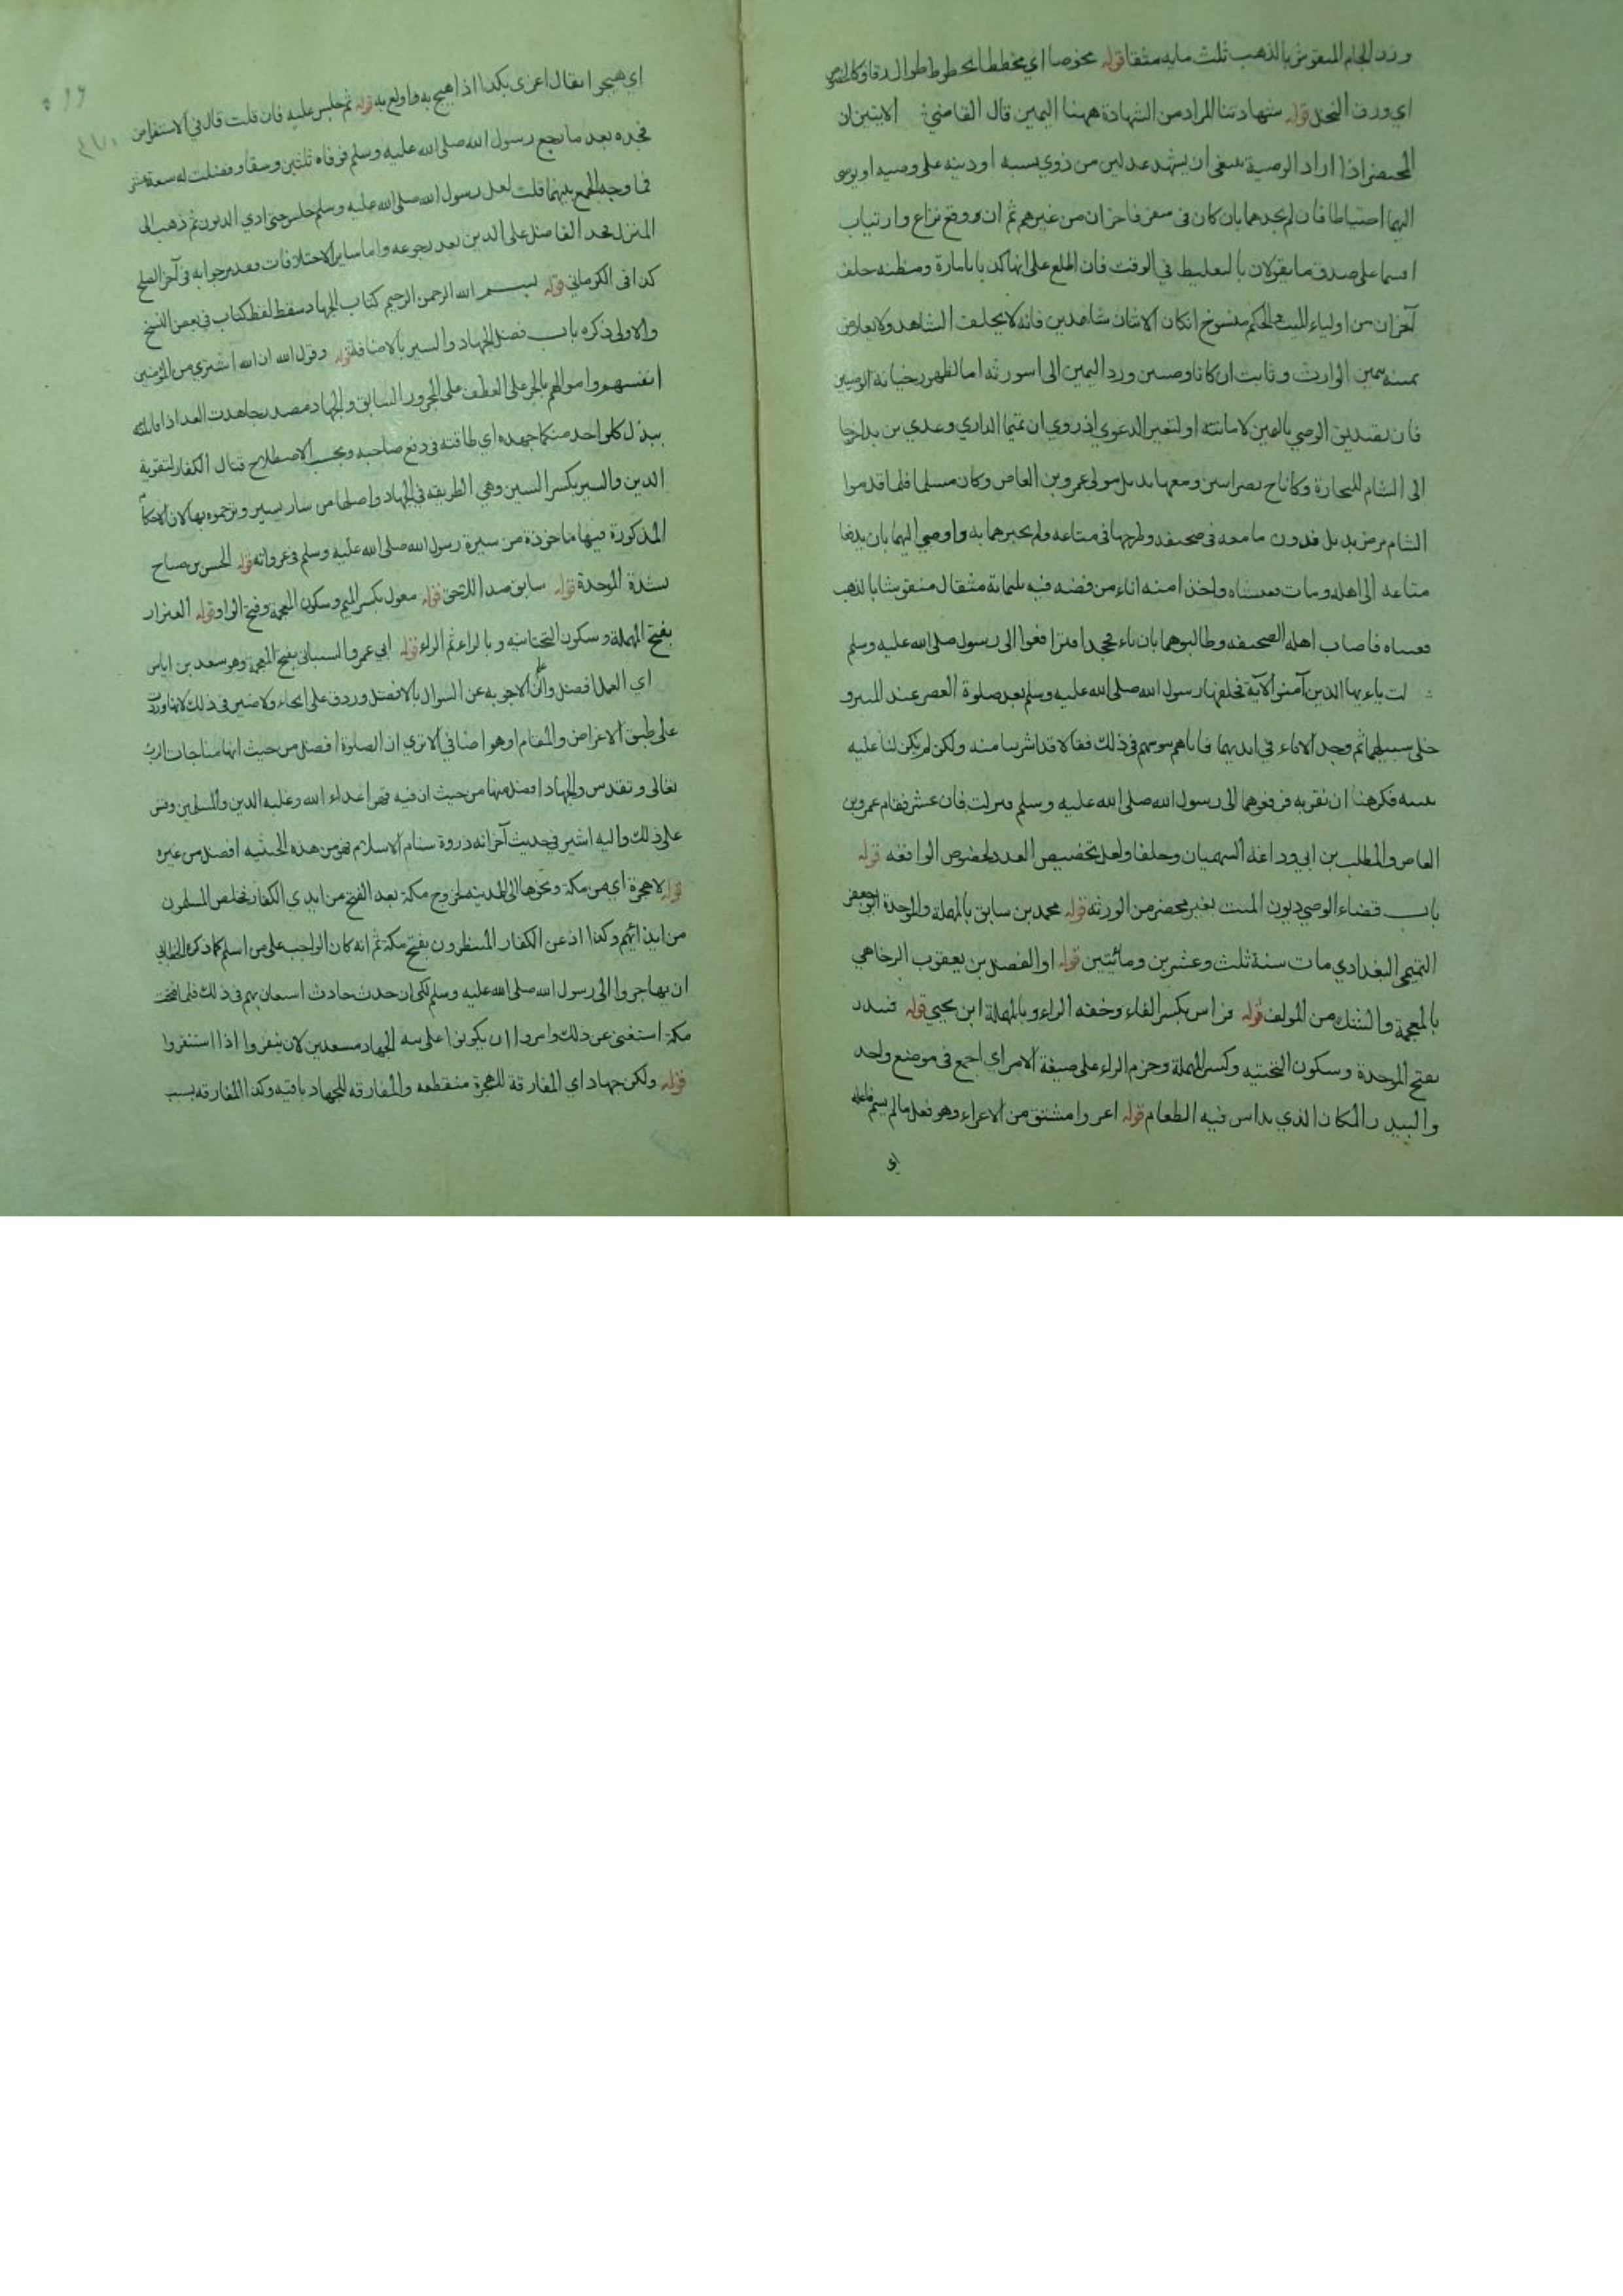 وزن الجام المنقوش بالذهب ثلث مايه مثقا قوله مخوصا اي مخططا بخطوط طوال دقاق كالخوص
اي ورق النخل قوله شهادتنا المراد من الشهادة ههنا اليمين قال القاضي الايتين ان
المحتضر اذا اراد الوصية ينبغي ان يشهد عدلين من ذوي نسبه او دينه على وصيه او يوصى
اليهما احتياطا فان لم يجدهما بان كان في سفر فاخران من غيرهم ثم ان وقع نزاع وارتياب
اقسما على صدق ما يقولان بالتغليظ في الوقت فان اطلع على انهما كذبا بامارة ومظنه حلف
آخران من اولياء الميت والحكم منسوخ ان كان الاثنان شاهدين فانه لا يحلف الشاهد ولا يعارض
يمينه بيمين الوارث وثابت ان كانا وصيين ورد اليمين الى الورثه اما لظهور خيانة الوصيين
فان تصديق الوصي باليمين لامانته او لتغير الدعوى اذ روي ان تميما الداري وعدي بن بدا خرجا
الى الشام للتجارة وكانا ح نصرانيين ومعهما بديل مولى عمرو بن العاص وكان مسلما فلما قدموا
الشام مرض بديل فدون ما معه في صحيفه وطرحها في متاعه ولم يخبرهما به واوصى اليهما بان يدفعا
متاعه الى اهله ومات ففتشاه واخذا منه اناء من فضه فيه ثلثمائة مثقال منقوشا بالذهب
فغيباه فاصاب اهله الصحيفه وطالبوهما بالاناء فجحدا فترافعوا الى رسول صلى الله عليه وسلم
لت ياءيها الذين آمنوا الآية فحلفهما رسول الله صلى الله عليه وسلم بعد صلوة العصر عند المنبر و
خلى سبيلهما ثم وجد الاناء في ايديهما فاتاهم بنو سهم في ذلك فقالا قد اشترينا منه ولكن لم يكن لنا عليه
بينه فكرهنا ان نقر به فرفعوهما الى رسول الله صلى الله عليه وسلم فنزلت فان عثر فقام عمرو بن
العاص والمطلب بن ابي وداعة السهميان وحلفا ولعل تخصيص العدد لخصوص الواقعه قوله
باب قضاء الوصي ديون الميت بغير محضر من الورثه قوله محمد بن سابق بالمهملة والموحدة ابو جعفر
التميمي البغدادي مات سنة ثلث وعشرين ومائتين قوله او الفضل بن يعقوب الرخامي
بالمعجمة والشك من المولف قوله فراس بكسر الفاء وخفه الراء وبالمهملة ابن يحيى قوله فبيدر
بفتح الموحدة وسكون التحتيه وكسر المهملة وجزم الراء على صيغة الامر اي اجمع في موضع واحد
والبيدر المكان الذي يداس فيه الطعام قوله اغروا مشتق من الاغراء وهو فعل ما لم يسم فاعله
اي
اي هيجوا يقال اغرى بكذا اذا هيج به واولع به قوله ثم جلس عليه فان قلت قال في الاستقراض
فجده بعد ما رجع رسول الله صلى الله عليه وسلم فوفاه ثلثين وسقا وفضلت له سبعة عشر
فما وجه الجمع بينهما قلت لعل رسول الله صلى الله عليه وسلم جلس حتى ادي الديون ثم ذهب الى
المنزل فجد الفاضل على الدين بعد رجوعه واما ساير الاختلافات فقد مر جوابه في آخر الصلح
كذا في الكرماني قوله بسم الله الرحمن الرحيم كتاب الجهاد سقط لفظ كتاب في بعض النسخ
والاولى ذكره باب فضل الجهاد والسير بالاضافة قوله وقول الله ان الله اشترى من المؤمنين
انفسهم واموالهم بالجر على العطف على المجرور السابق والجهاد مصدر جاهدت العدو اذا قابلته
ببذل كل واحد منكما جهده اي طاقته في دفع صاحبه وبحسب الاصطلاح قتال الكفار لتقوية
الدين والسير بكسر السين وهي الطريقه في الجهاد واصلها من سار يسير وترجموه بها لان الاحكام
المذكورة فيها ماخوذة من سيرة رسول الله صلى الله عليه وسلم في غزواته قوله الحسن بن صباح
بشدة الموحدة قوله سابق ضد اللاحق قوله مغول بكسر الميم وسكون المعجمة وفتح الواو قوله العيزار
بفتح المهملة وسكون التحتانيه وبالزاء ثم الراء قوله ابي عمرو الشيباني بفتح المعجمة وهو سعد بن اياس
اي العمل افضل والاجوبه عن السوال بالافضل ورد على انحاء ولا ضير في ذلك لانها وردت
على طبق الاغراض والمقام او هو اضافي الا ترى ان الصلوة افضل من حيث انها مناجات الرب
تعالى وتقدس والجهاد افضل منها من حيث ان فيه قهر اعداء الله وغلبه الدين والمسلمين وقس
على ذلك واليه اشير في حديث آخر انه ذروة سنام الاسلام فهو من هذه الحيثيه افضل من غيره
قوله لا هجرة اي من مكة ونحوها الى المدينه لخروج مكة بعد الفتح من ايدي الكفار فخلص المسلمون
من ايذائهم وكذا اذعن الكفار المنتظرون بفتح مكة ثم انه كان الواجب على من اسلم كما ذكره الخطابي
ان يهاجروا الى رسول الله صلى الله عليه وسلم لكى ان حدث حادث استعان بهم في ذلك فلما افتتحت
مكة استغنى عن ذلك وامروا ان يكونوا على نية الجهاد مستعدين لان ينفروا اذا استنفروا
قوله ولكن جهاد اي المفارقة للهجرة منقطعه والمفارقه للجهاد باقيه وكذا المفارقه بسبب